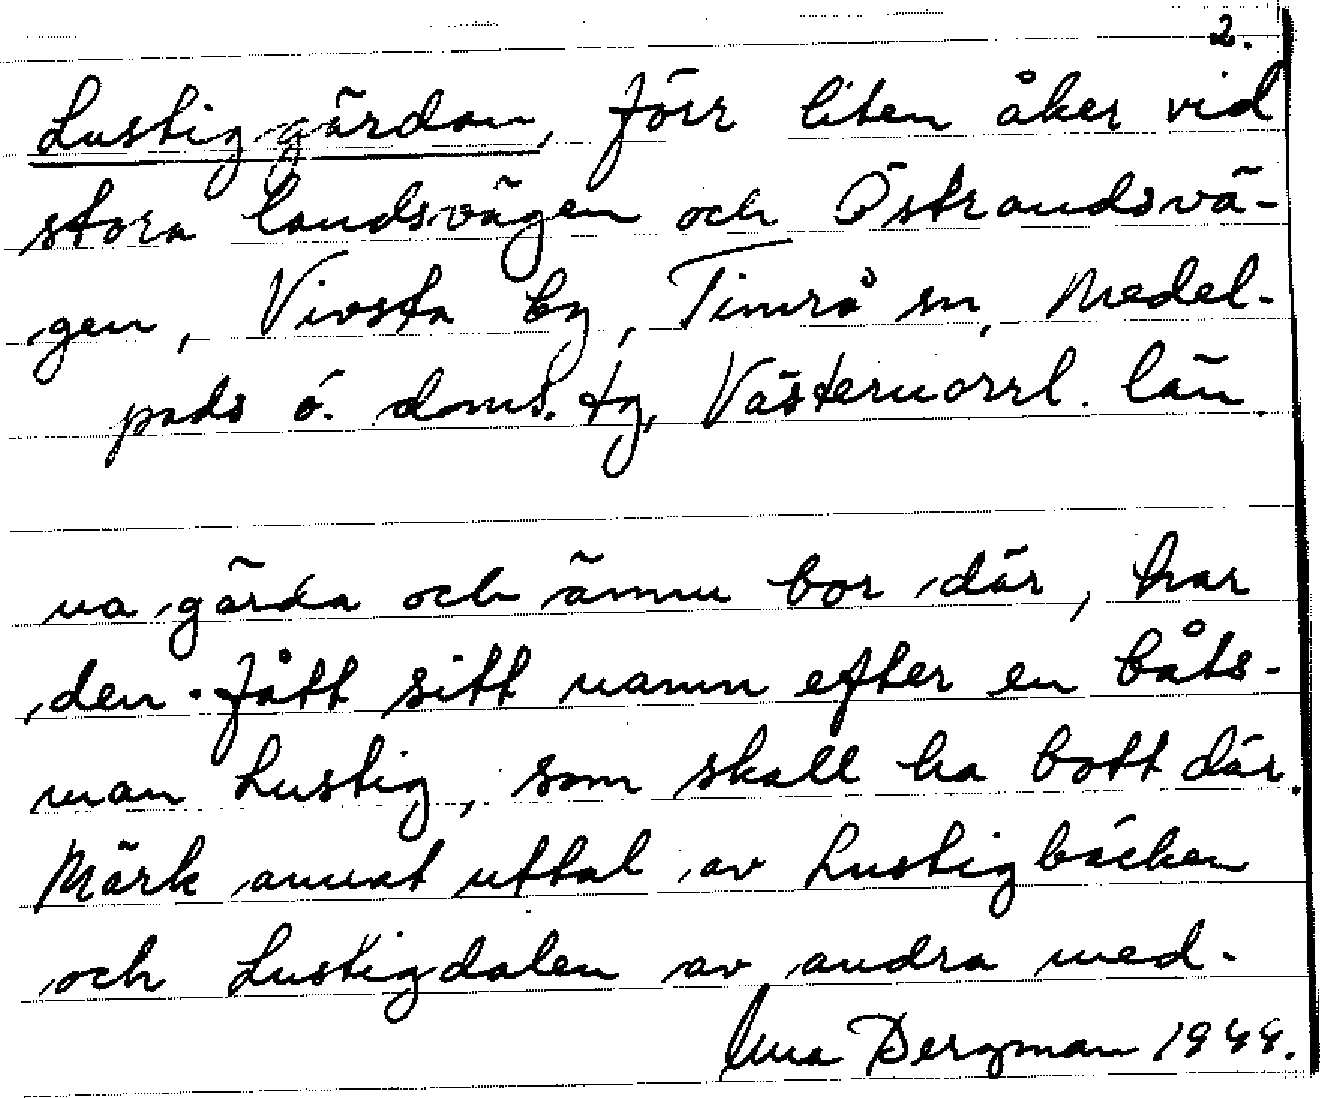 2.
Lustiggärdan, förr liten åker vid
stora landsvägen och Östrandsvä-
gen, Vivsta by, Timrå sn, Medel-
pads ö. doms. tg, Västernorrl. län.
na gärda och ännu bor där, har
den fått sitt namn efter en båts-
man Lustig, som skall ha bott där.
Märk annat uttal av Lustigbäcken
och Lustigdalen av andra med-
Bergman 1944.